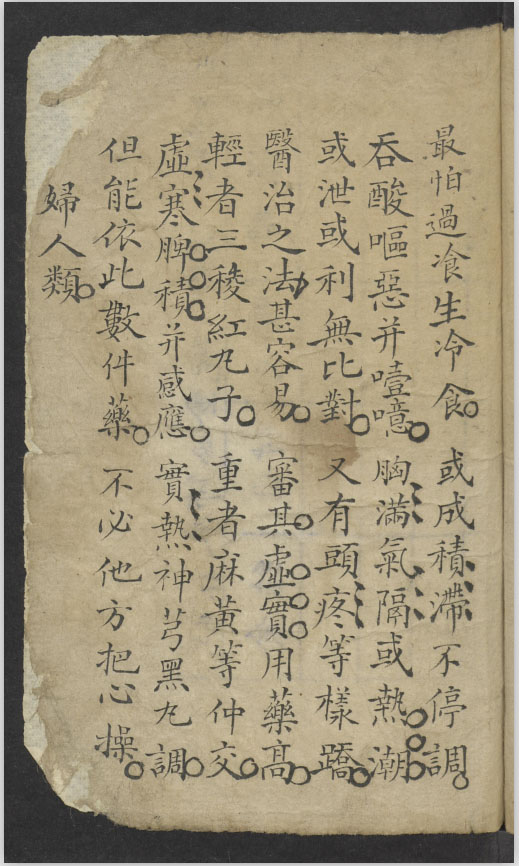 最怕過飡生冷食。或成積滯不停調。
吞酸嘔惡并噎噫。胸滿氣隔或熱潮。
或泄或利無比對。又有頭疼等樣蹺。
醫治之法甚容易。審其虛實用藥高。
輕者三稜紅丸子。重者麻黃等仲交。
虛寒脾積并感應。實熱神芎黑丸調。
但能依此數件藥。不必他方把心操。
婦人類。